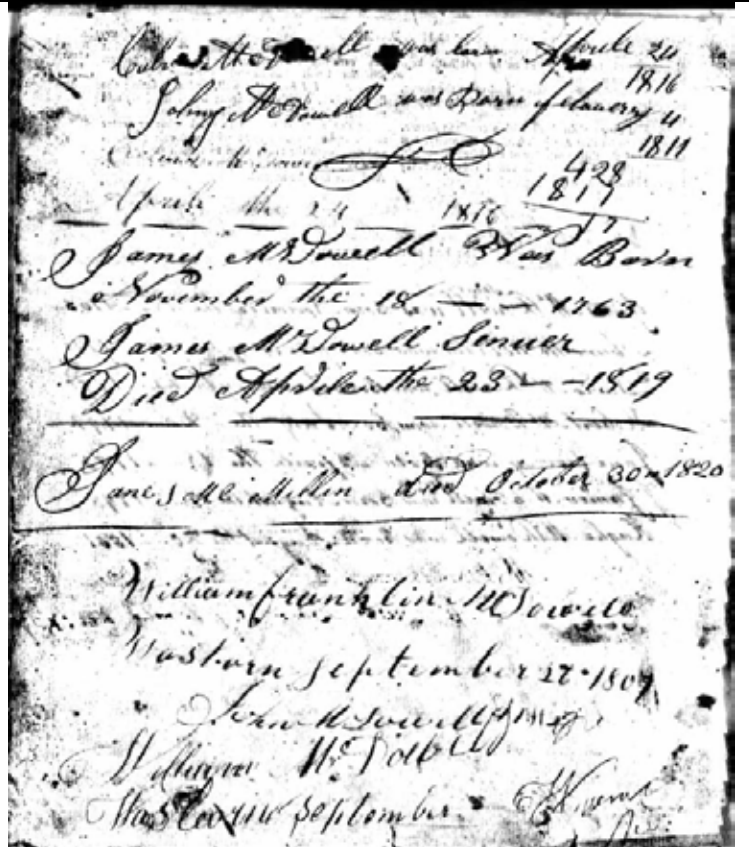 McDowell was born Aprile 24
1816
Johny McDowell was Born febuary 4
1811
428
1817
17
Aprile the 24 1816
James McDowell Was Born
November the 18 — — 1763
James McDowell Sinuer
Died Aprile the 23 — — 1819
James McMillin died October 30 1820
William franklin McDowell
Was born September 27 1809
John McDowell
William Mc
Was born September